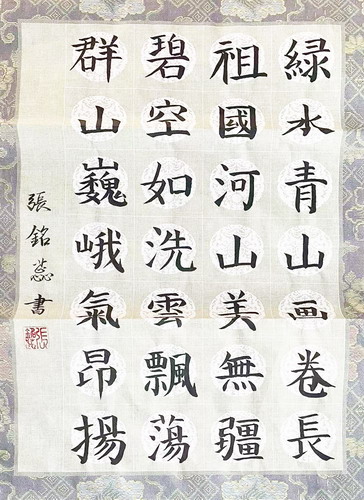 緑水青山画卷長
祖國河山美無疆
碧空如洗雲飄蕩
群山巍峨氣昂揚
張銘蕊書